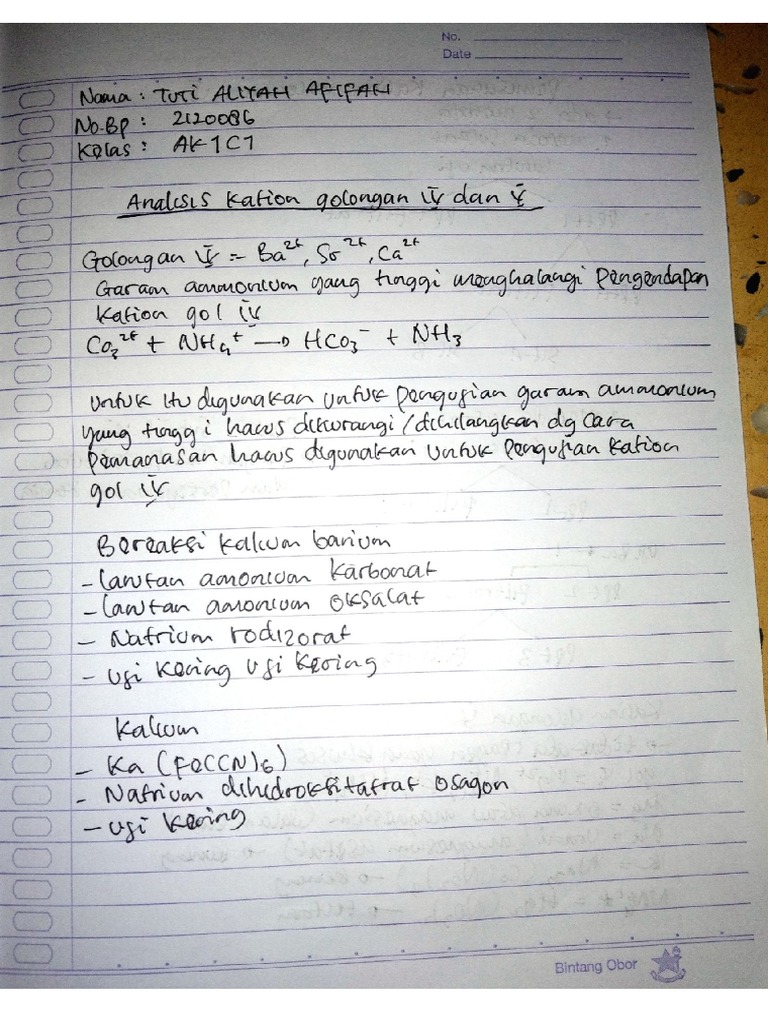 No.
Date
Nama : TUTI ALIYAH AFIFAH
No.Bp : 2120086
Kelas : AK1C1
Analisis Kation golongan IV dan V
Golongan IV = Ba²⁺, Sr²⁺, Ca²⁺
Garam ammonium yang tinggi menghalangi pengendapan
Kation gol IV
CO₃²⁺ + NH₄⁺ → HCO₃⁻ + NH₃
untuk itu digunakan untuk pengujian garam ammonium
yang tinggi harus dikurangi/dihilangkan dg cara
pemanasan harus digunakan untuk pengujian kation
gol IV
Bereaksi kalium barium
- larutan amonium karbonat
- larutan amonium oksalat
- Natrium rodizorat
- uji kering uji kering
Kalium
- Ka (Fe(CN)6)
- Natrium dihidroksitatrat osagon
- uji kering
Bintang Obor